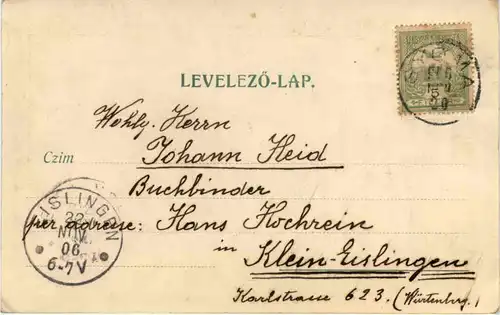 LEVELEZŐ-LAP.
Wohlg. Herrn
Johann Heid
Czim
Buchbinder
per adresse: Hans Hochrein
in
Klein-Eislingen
Karlstrasse 623. (Würtenberg.)
EISLINGEN
22
NOV.
06
6-7V